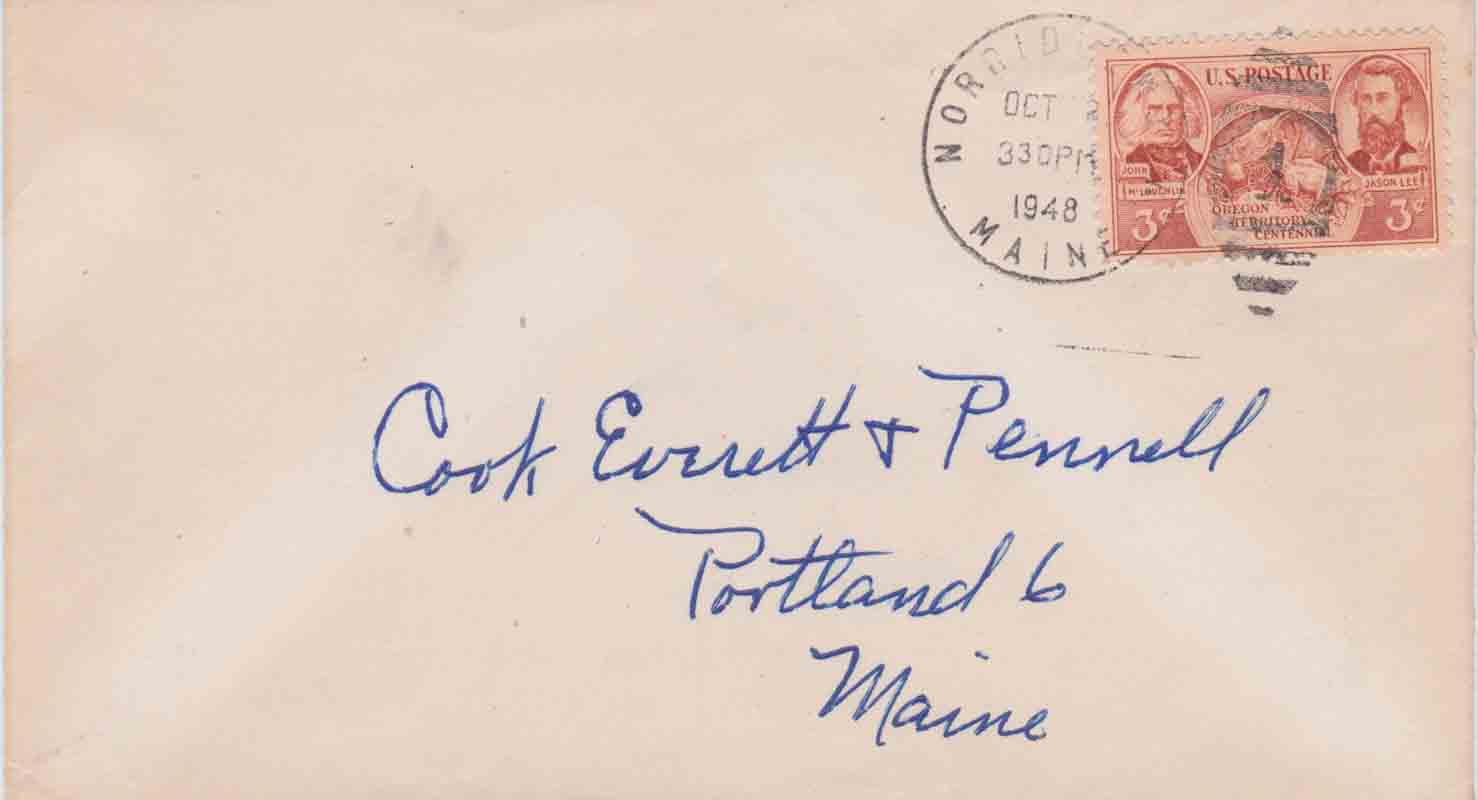 OCT
330PM
1948
MAINE
U.S. POSTAGE
JOHN
McLOUGHLIN
JASON LEE
3¢
OREGON
TERRITORY
CENTENNIAL
3¢
1
Cook Everett & Pennell
Portland 6
Maine